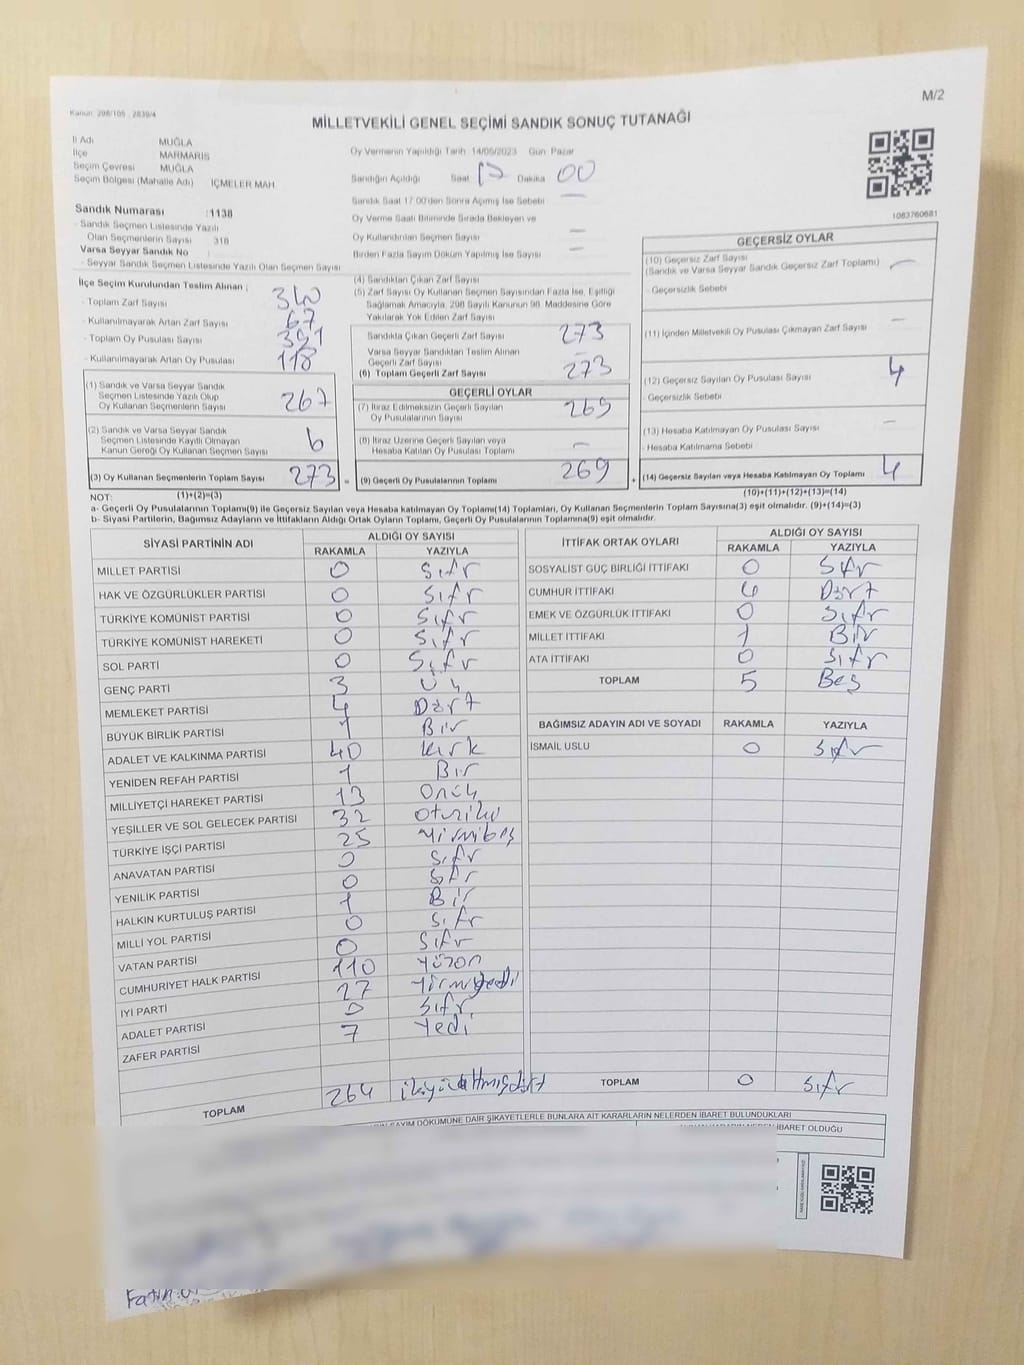 Kanun: 298/105 - 2839/4
M/2
MİLLETVEKİLİ GENEL SEÇİMİ SANDIK SONUÇ TUTANAĞI
İl Adı MUĞLA
İlçe MARMARİS
Seçim Çevresi MUĞLA
Seçim Bölgesi (Mahalle Adı) İÇMELER MAH.
Sandık Numarası :1138
- Sandık Seçmen Listesinde Yazılı
Olan Seçmenlerin Sayısı 318
Varsa Seyyar Sandık No :
- Seyyar Sandık Seçmen Listesinde Yazılı Olan Seçmen Sayısı
Oy Vermenin Yapıldığı Tarih 14/05/2023 Gün Pazar
Sandığın Açıldığı Saat 17 Dakika 00
Sandık Saat 17:00'den Sonra Açılmış İse Sebebi —
Oy Verme Saati Bitiminde Sırada Bekleyen ve
Oy Kullandırılan Seçmen Sayısı —
Birden Fazla Sayım Döküm Yapılmış İse Sayısı —
1083760681
İlçe Seçim Kurulundan Teslim Alınan :
- Toplam Zarf Sayısı 340
- Kullanılmayarak Artan Zarf Sayısı 67
- Toplam Oy Pusulası Sayısı 391
- Kullanılmayarak Artan Oy Pusulası 118
(1) Sandık ve Varsa Seyyar Sandık
Seçmen Listesinde Yazılı Olup
Oy Kullanan Seçmenlerin Sayısı 267
(2) Sandık ve Varsa Seyyar Sandık
Seçmen Listesinde Kayıtlı Olmayan
Kanun Gereği Oy Kullanan Seçmen Sayısı 6
(3) Oy Kullanan Seçmenlerin Toplam Sayısı 273
(1)+(2)=(3)
(4) Sandıktan Çıkan Zarf Sayısı
(5) Zarf Sayısı Oy Kullanan Seçmen Sayısından Fazla İse, Eşitliği
Sağlamak Amacıyla, 298 Sayılı Kanunun 98. Maddesine Göre
Yakılarak Yok Edilen Zarf Sayısı
Sandıkta Çıkan Geçerli Zarf Sayısı 273
Varsa Seyyar Sandıktan Teslim Alınan
Geçerli Zarf Sayısı —
(6) Toplam Geçerli Zarf Sayısı 273
GEÇERLİ OYLAR
(7) İtiraz Edilmeksizin Geçerli Sayılan
Oy Pusulalarının Sayısı 269
(8) İtiraz Üzerine Geçerli Sayılan veya
Hesaba Katılan Oy Pusulası Toplamı —
= (9) Geçerli Oy Pusulalarının Toplamı 269 +
GEÇERSİZ OYLAR
(10) Geçersiz Zarf Sayısı
(Sandık ve Varsa Seyyar Sandık Geçersiz Zarf Toplamı) —
- Geçersizlik Sebebi
(11) İçinden Milletvekili Oy Pusulası Çıkmayan Zarf Sayısı —
(12) Geçersiz Sayılan Oy Pusulası Sayısı 4
- Geçersizlik Sebebi
(13) Hesaba Katılmayan Oy Pusulası Sayısı —
- Hesaba Katılmama Sebebi
(14) Geçersiz Sayılan veya Hesaba Katılmayan Oy Toplamı 4
(10)+(11)+(12)+(13)=(14)
NOT:
a- Geçerli Oy Pusulalarının Toplamı(9) ile Geçersiz Sayılan veya Hesaba katılmayan Oy Toplamı(14) Toplamları, Oy Kullanan Seçmenlerin Toplam Sayısına(3) eşit olmalıdır. (9)+(14)=(3)
b- Siyasi Partilerin, Bağımsız Adayların ve İttifakların Aldığı Ortak Oyların Toplamı, Geçerli Oy Pusulalarının Toplamına(9) eşit olmalıdır.
SİYASİ PARTİNİN ADI ALDIĞI OY SAYISI
RAKAMLA YAZIYLA
MİLLET PARTİSİ 0 Sıfır
HAK VE ÖZGÜRLÜKLER PARTİSİ 0 Sıfır
TÜRKİYE KOMÜNİST PARTİSİ 0 Sıfır
TÜRKİYE KOMÜNİST HAREKETİ 0 Sıfır
SOL PARTİ 0 Sıfır
GENÇ PARTİ 3 Üç
MEMLEKET PARTİSİ 4 Dört
BÜYÜK BİRLİK PARTİSİ 1 Bir
ADALET VE KALKINMA PARTİSİ 40 Kırk
YENİDEN REFAH PARTİSİ 1 Bir
MİLLİYETÇİ HAREKET PARTİSİ 13 Onüç
YEŞİLLER VE SOL GELECEK PARTİSİ 32 Otuziki
TÜRKİYE İŞÇİ PARTİSİ 25 Yirmibeş
ANAVATAN PARTİSİ 0 Sıfır
YENİLİK PARTİSİ 0 Sıfır
HALKIN KURTULUŞ PARTİSİ 1 Bir
MİLLİ YOL PARTİSİ 0 Sıfır
VATAN PARTİSİ 0 Sıfır
CUMHURİYET HALK PARTİSİ 110 Yüzon
İYİ PARTİ 27 Yirmiyedi
ADALET PARTİSİ 0 Sıfır
ZAFER PARTİSİ 7 Yedi
TOPLAM 264 ikiyüzaltmışdört
İTTİFAK ORTAK OYLARI ALDIĞI OY SAYISI
RAKAMLA YAZIYLA
SOSYALİST GÜÇ BİRLİĞİ İTTİFAKI 0 Sıfır
CUMHUR İTTİFAKI 4 Dört
EMEK VE ÖZGÜRLÜK İTTİFAKI 0 Sıfır
MİLLET İTTİFAKI 1 Bir
ATA İTTİFAKI 0 Sıfır
TOPLAM 5 Beş
BAĞIMSIZ ADAYIN ADI VE SOYADI RAKAMLA YAZIYLA
İSMAİL USLU 0 Sıfır
TOPLAM 0 Sıfır
SAYIM DÖKÜMÜNE DAİR ŞİKAYETLERLE BUNLARA AİT KARARLARIN NELERDEN İBARET BULUNDUKLARI
İBARET OLDUĞU